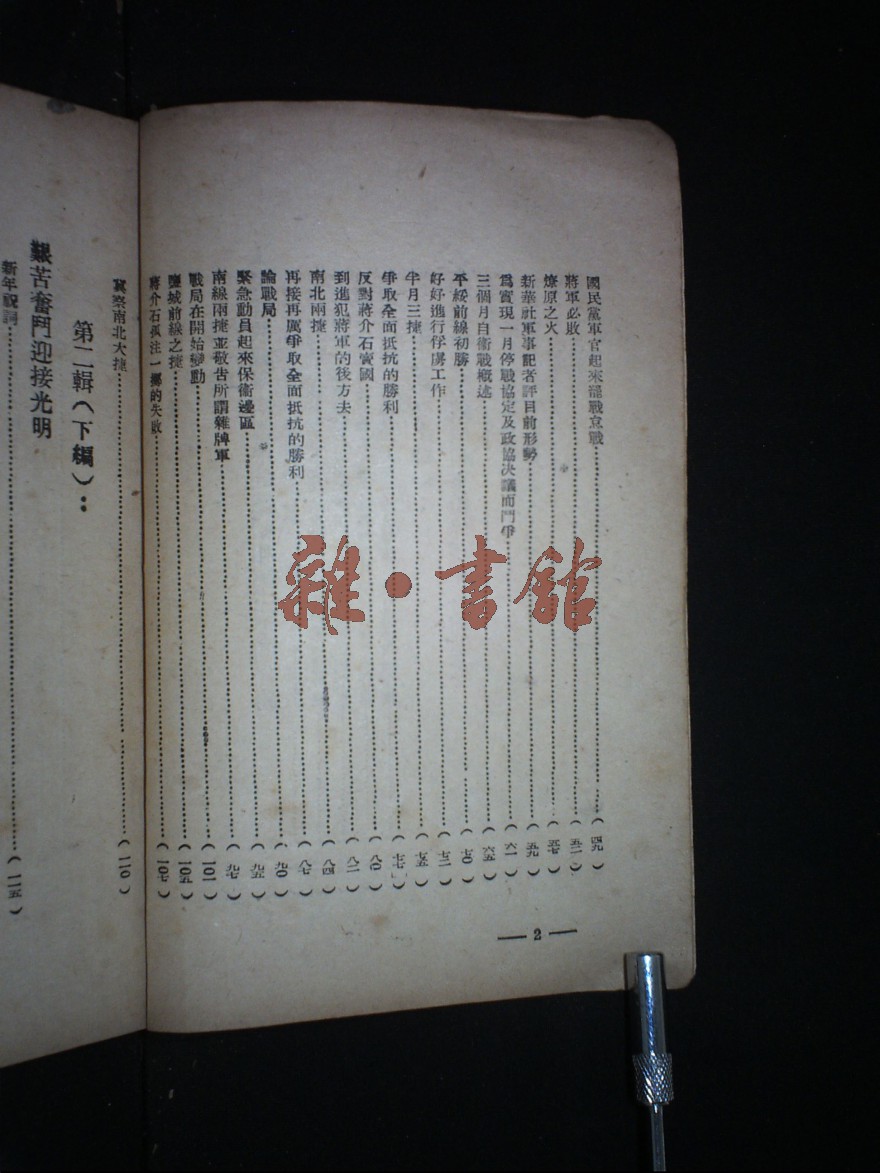 國民黨軍官起來罷戰京戰……(四九)
蔣軍必敗……(五二)
燎原之火……(五七)
新華社軍事記者評目前形勢……(五九)
爲實現一月停戰協定及政協決議而鬥爭……(六一)
三個月自衛戰概述……(六五)
平綏前線初勝……(七〇)
好好進行俘虜工作……(七二)
半月三捷……(七五)
爭取全面抵抗的勝利……(七七)
反對蔣介石賣國……(八〇)
到進犯蔣軍的後方去……(八二)
南北兩捷……(八四)
再接再厲爭取全面抵抗的勝利……(八七)
論戰局……(九〇)
緊急動員起來保衛邊區……(九五)
南線兩捷並敬告所謂雜牌軍……(九七)
戰局在開始變動……(一〇一)
鹽城前線之捷……(一〇五)
蔣介石孤注一擲的失敗……(一〇七)
— 2 —
冀察南北大捷……(一一〇)
第二輯(下編):
艱苦奮鬥迎接光明
新年祝詞……(一一五)
雜·書館